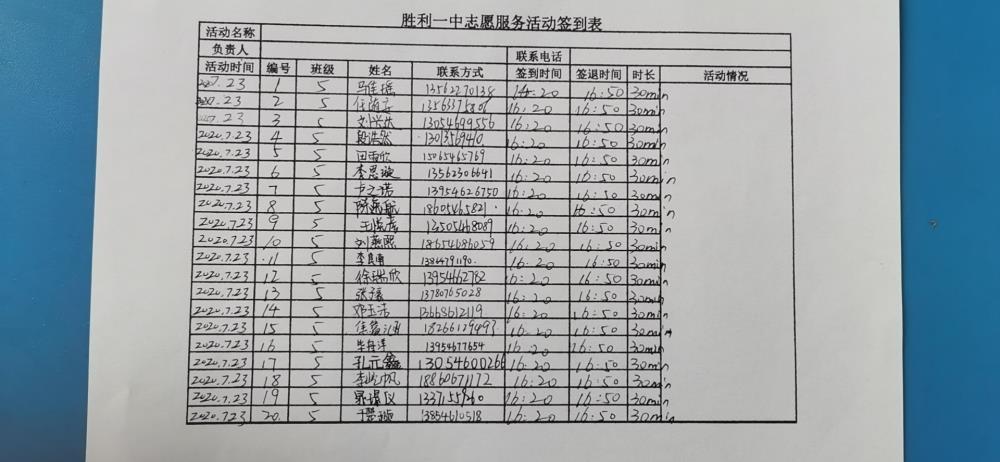 胜利一中志愿服务活动签到表
活动名称
负责人 联系电话
活动时间 编号 班级 姓名 联系方式 签到时间 签退时间 时长 活动情况
7.23 1 5 马佳瑶 13562270138 16:20 16:50 30min
7.23 2 5 16:20 16:50 30min
7.23 3 5 13054699556 16:20 16:50 30min
2020.7.23 4 5 段浩然 16:20 16:50 30min
2020.7.23 5 5 田雨欣 15065465769 16:20 16:50 30min
2020.7.23 6 5 李思璇 13562306641 16:20 16:50 30min
2020.7.23 7 5 卢之诺 13954626750 16:20 16:50 30min
2020.7.23 8 5 18605465821 16:20 16:50 30min
2020.7.23 9 5 16:20 16:50 30min
2020.7.23 10 5 刘燕熙 18654686059 16:20 16:50 30min
2020.7.23 11 5 16:20 16:50 30min
2020.7.23 12 5 徐瑞欣 13954662782 16:20 16:50 30min
2020.7.23 13 5 13780765028 16:20 16:50 30min
2020.7.23 14 5 邓玉洁 13668612119 16:20 16:50 30min
2020.7.23 15 5 18266129493 16:20 16:50 30min
2020.7.23 16 5 13954677654 16:20 16:50 30min
2020.7.23 17 5 孔元鑫 13054600266 16:20 16:50 30min
2020.7.23 18 5 李屹帆 18860671172 16:20 16:50 30min
2020.7.23 19 5 16:20 16:50 30min
2020.7.23 20 5 13854610518 16:20 16:50 30min